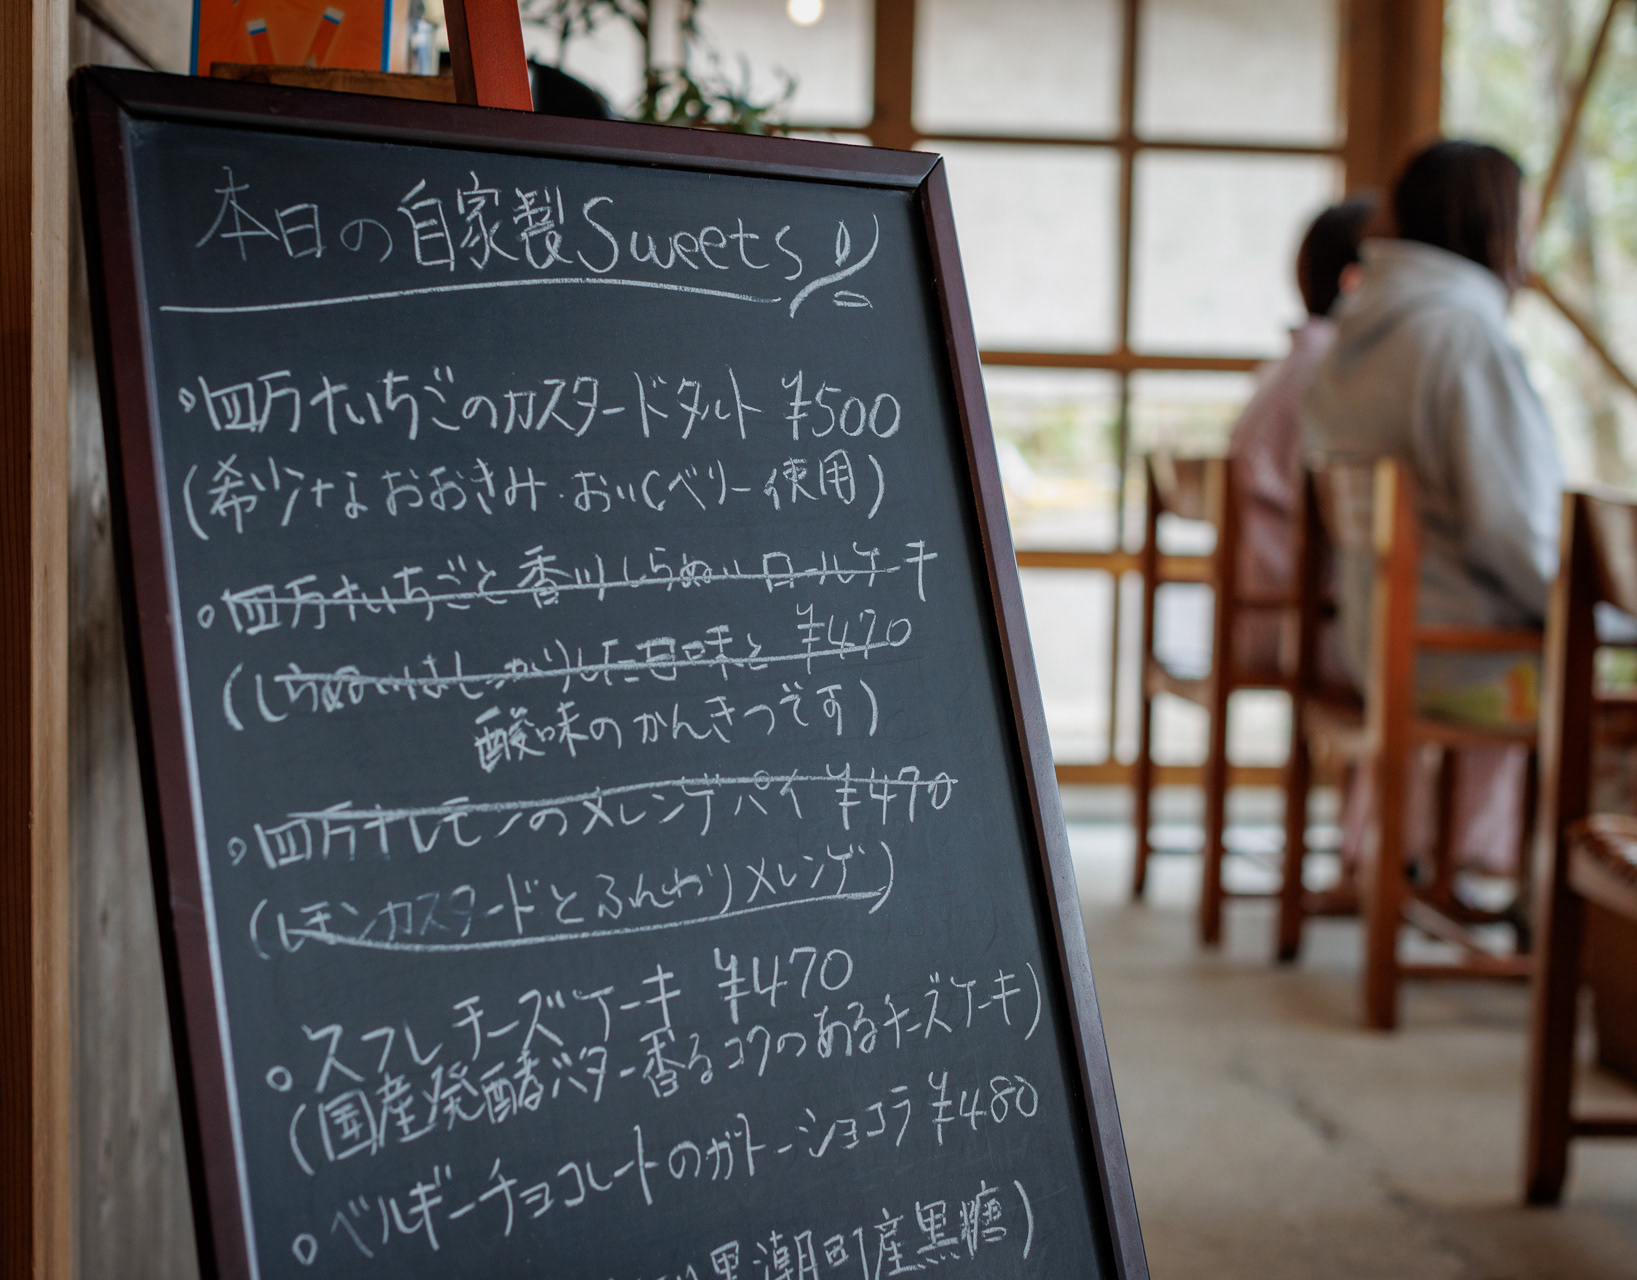 本日の自家製Sweets
四万十いちごのカスタードタルト ¥500
(希少なおおきみ・おいCベリー使用)
四万十いちごと香川しらぬいロールケーキ
¥470
(しらぬいはしっかりした甘味と
酸味のかんきつです)
四万十レモンのメレンゲパイ ¥470
(レモンカスタードとふんわりメレンゲ)
スフレチーズケーキ ¥470
(国産発酵バター香るコクのあるチーズケーキ)
ベルギーチョコレートのガトーショコラ ¥480
黒潮町産黒糖)